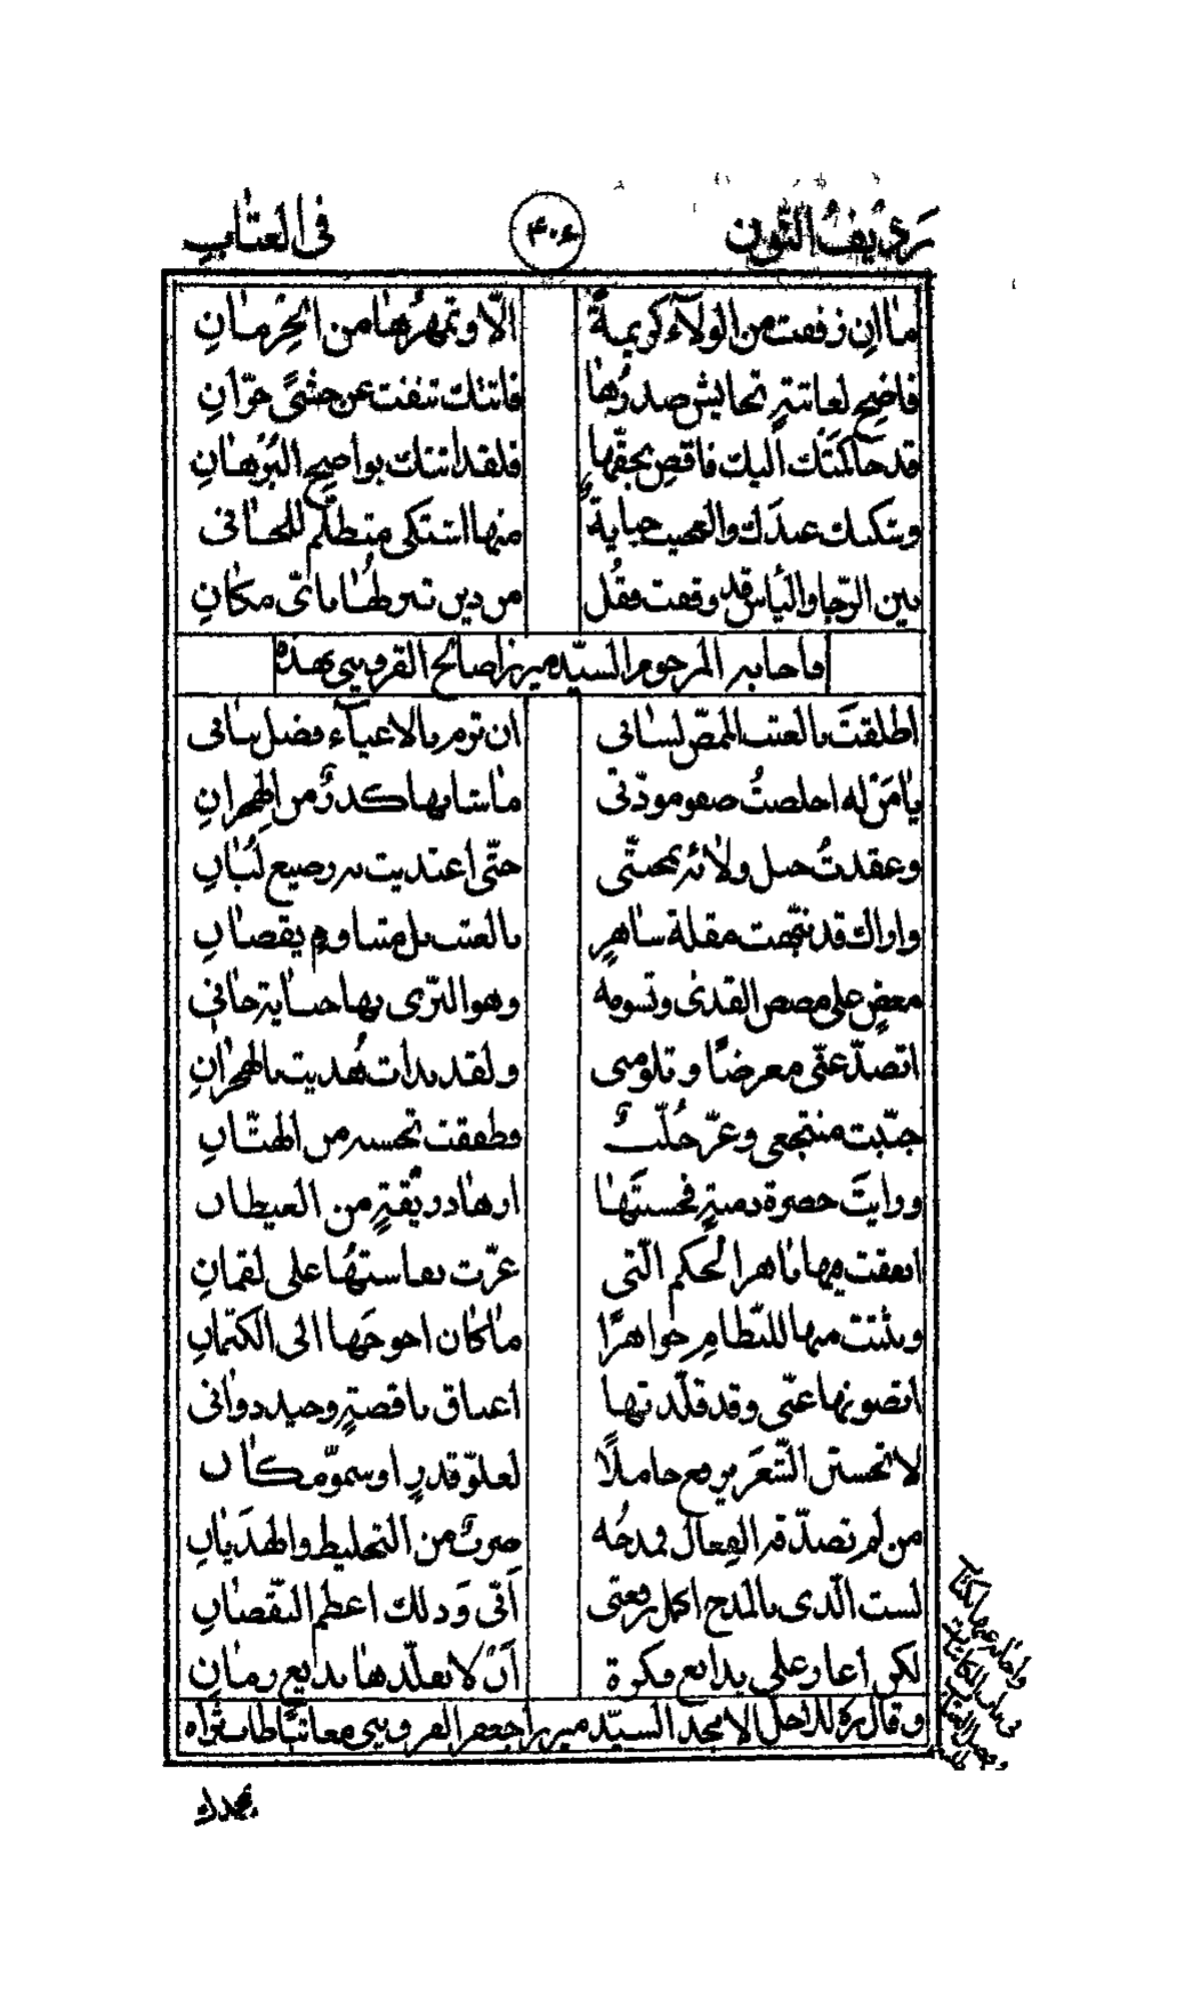 رَديفُ النّون ٤٠٦ فى العتاب
ما ان زففت من الولآء كريمةً الّا وتمهرُها من الحِرْمانِ
فاضِح لعاتبةٍ تجايش صدرُها فاتتك تنفث عن حشىً حرّانِ
قد حاكمَتك اليك فاقضِ بحقّها فلقد اتتك بواضح البُرْهانِ
وشكتك عبدَك والقصيّة منها اشتكى متظلّم للجانى
بين الرّجا واليأس قد وقفت فقُل من دين شرطُها باىّ مكانِ
فاجابه المرحوم السيّد ميرزا صالح القزوينى بهذه
اطلقتَ بالعتب الممضّ لسانى ان ترم بالاعيآء فضل بيانى
يا مَنْ له اخلصتُ صفو مودّتى ما شابها كدرٌ من الهجرانِ
وعقدتُ حبل ولائه بمحبّتى حتّى اغتديت به رضيع لبانِ
واراك قد نبّهت مقلة ساهرٍ بالعتب بل متناومٍ يقضانِ
مغضٍ على مضض القذى وتسومه وهو البرّى بها جناية جانى
اتصدّ عنّى معرضًا وتلومنى ولقد بدات هُديت بالهجرانِ
جنّبت منتجعى وغرّ خُلّبٌ وطفقت تحسبه من الهتّانِ
ورايتَ خضرة دمنةٍ فحسبتَها ازهار ويقةٍ من الغيطان
انفقت فيها باهر الحكم الّتى عزّت نفاستُها على لقمانِ
ونثرت فيها للنّظامِ جواهرًا ما كان احوجَها الى الكتمانِ
اتصونها عنّى وقد قلّدتها اعناق ناقصةٍ وجيد دوانى
لا تحسبنّ الشّعرَ يرفع خاملًا لعلوّ قدرٍ او سموّ مكان
من لم تصدّقه الفِعال فمدحُه ضربٌ من التخليط والهذيانِ
لست الّذى بالمدح اكمل رفعتى اَنّى وَذلك اعظم النّقصانِ
لكن اغار على بدايع فكرة اَنْ لا يقلّدها بديع زمانِ
وقال ره للاجلّ الامجد السيّد ميرزا جعفر القزوينى معاتبًا طاب ثراه